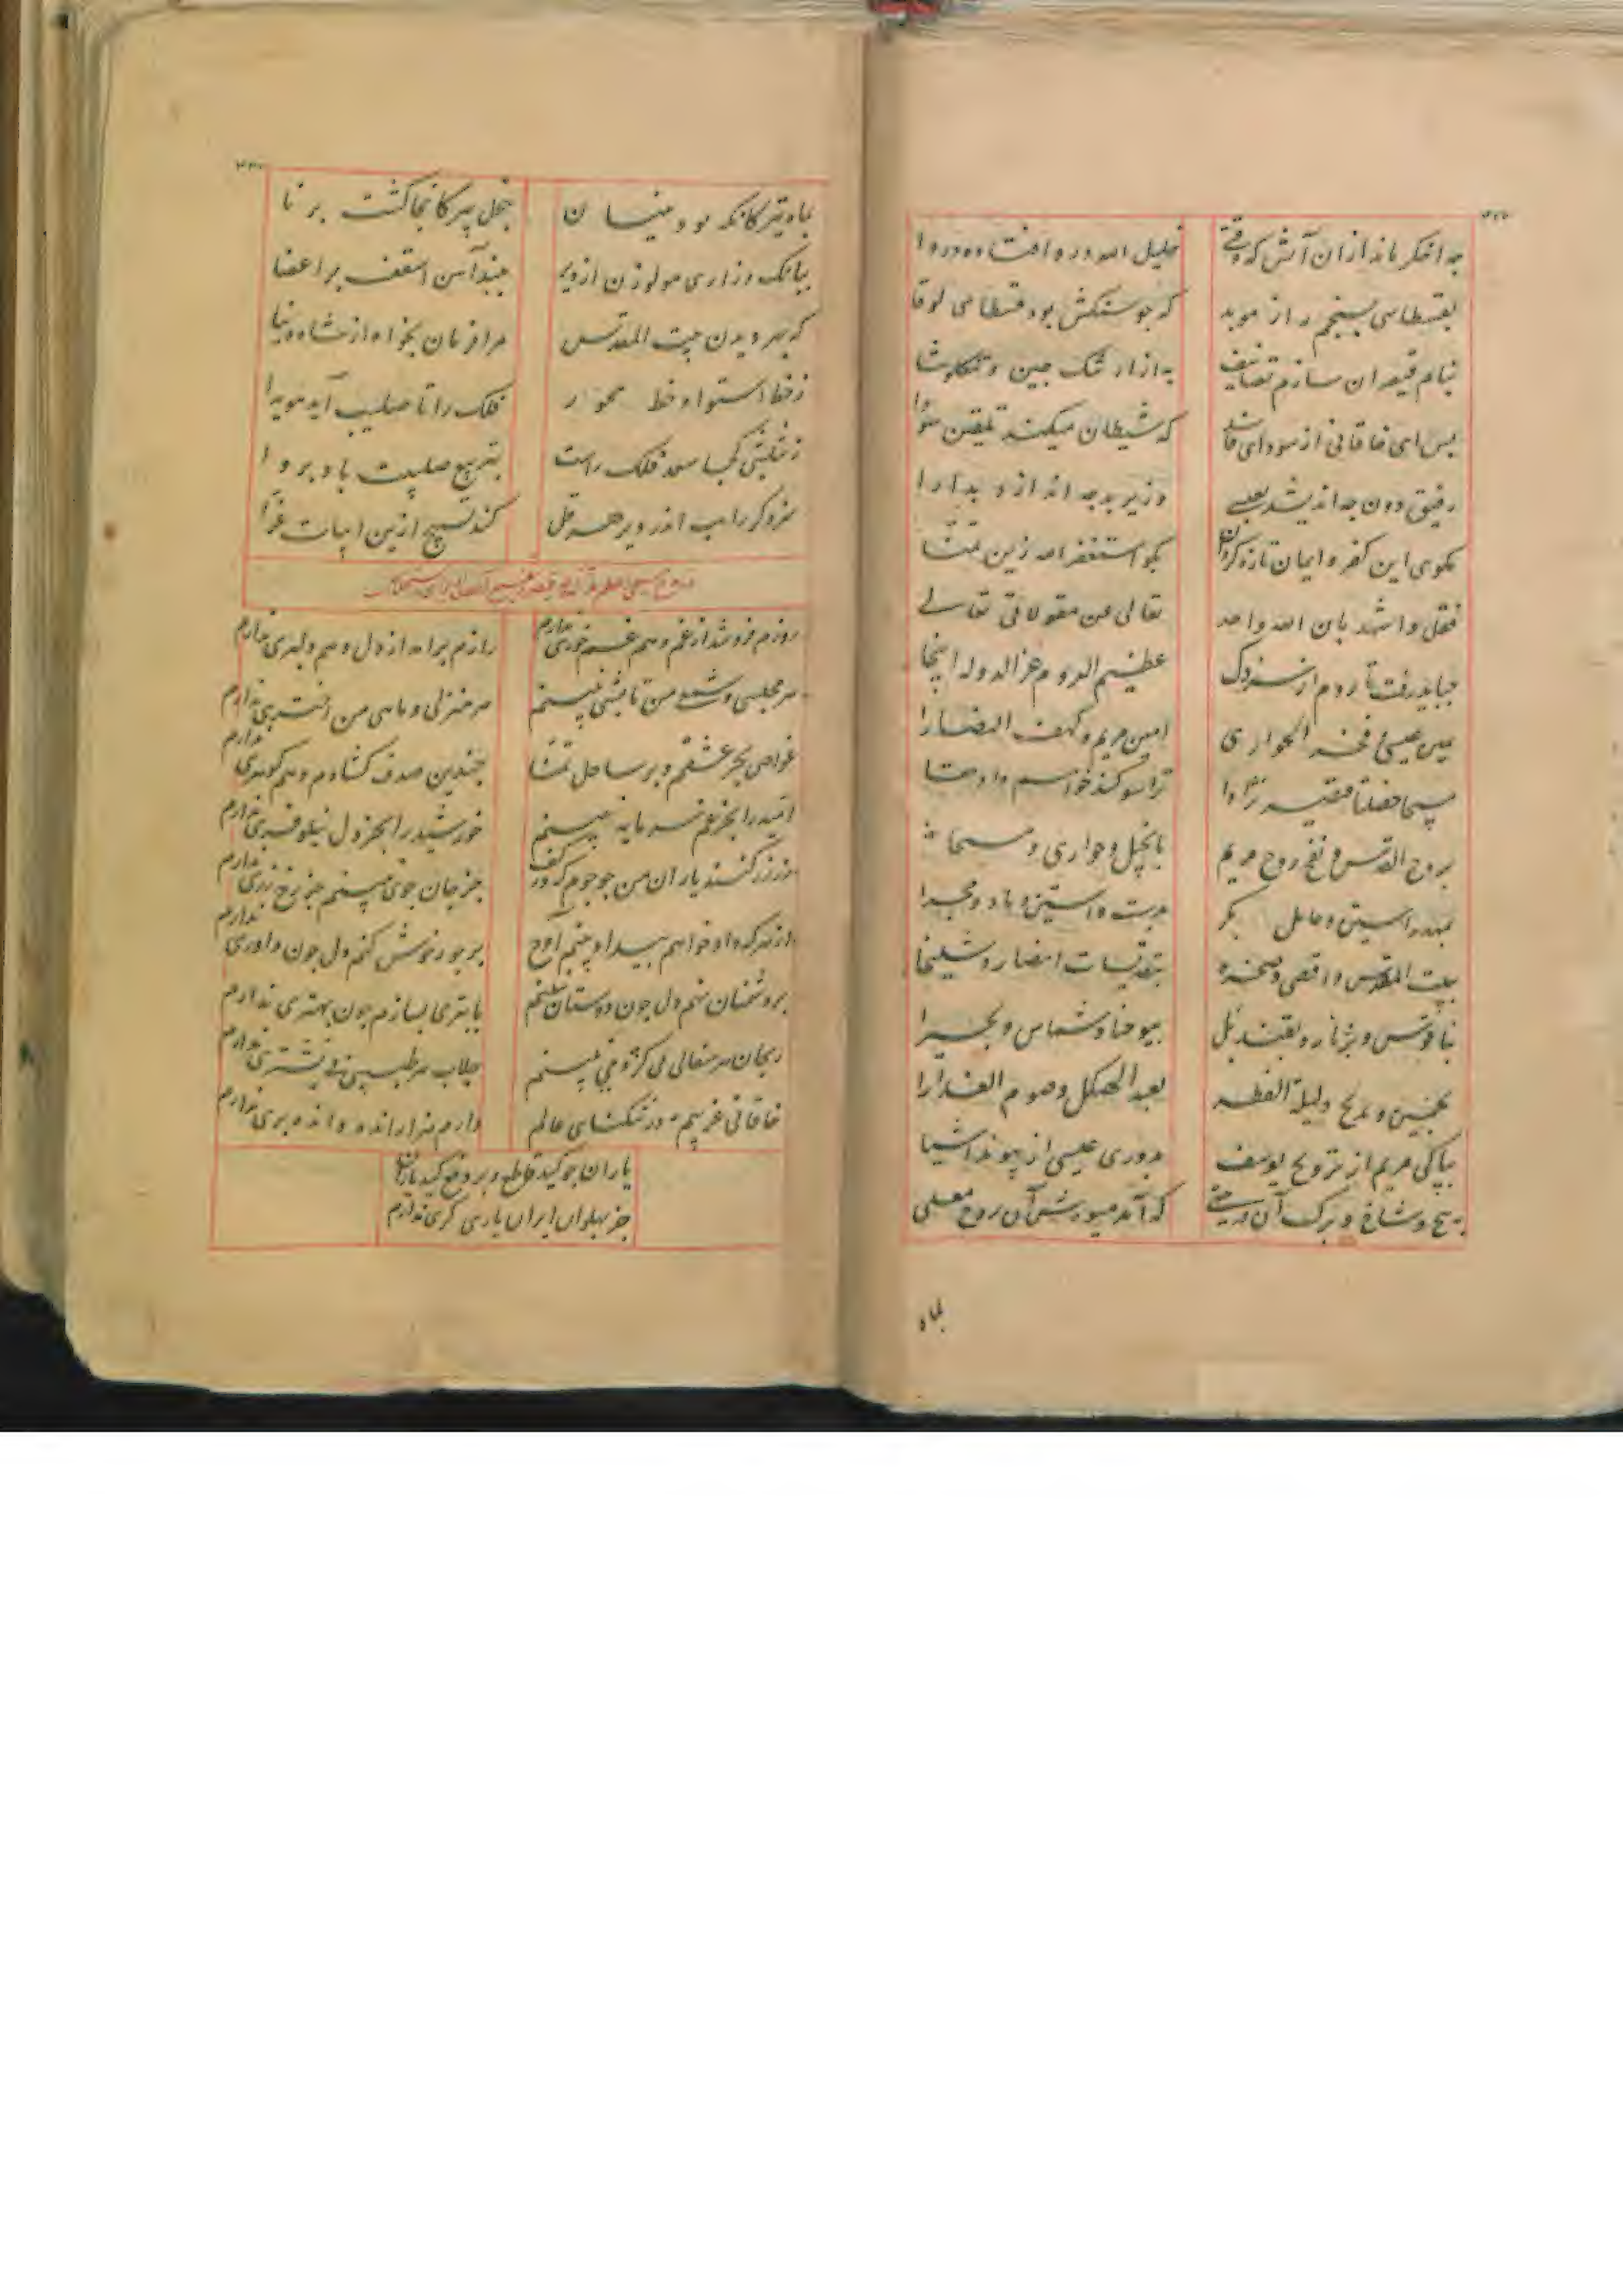 چه اخکر ماند از ان آتش که وقتی خلیل الله در و افتاد دروا
بقسطاسی بسنجم راز موبد که جوسنکش بود قسطای لوقا
بنام قیصران سازم تصانیف به از ارتنک چین و تنکلوشا
بس ای خاقانی از سودای فاسد که شیطان میکند تلقین سودا
رفیق دون چه اندیشد بعیسی وزیر بد چه اندازد بدارا
مکوی این کفر و ایمان تازه کردان بکو استغفر الله زین تمنا
فقل و اشهد بان الله واحد تعالی عن مقولاتی تعالی
چباید رفت تا روم از سر ذل عظیم الروم عز الدوله اینجا
یمین عیسی و فخر الحواری امین مریم و کهف النصارا
مسیحا خصلتا قیصر نژادا ترا سوکند خواهم داد حقا
بروح القدس و نفخ روح مریم بانجیل و حواری و مسیحا
بمهد راستین و حامل بکر بدست و استین و باد و مجرا
ببیت المقدس و اقصی و صخره بتقدیسات انصار و شلیخا
بناقوس و بزنار و بقندیل بیوحنا و شماس و بحیرا
بخمسین و بدبح و لیلة الفطر بعید الهیکل و صوم العذارا
بپاکی مریم از تزویج یوسف بدوری عیسی از پیوند اشیا
به بیخ و شاخ و برک آن درختی که آمد میوه‌ش آن روح معلی
بماه
بماه تیر کانکه بود نیسان بنخل پیر کانجا کشت برنا
ببانک و زاری مولوزن از دیر ببند آهن اسقف بر اعضا
که بهر دیدن بیت المقدس مرا فرمان بخواه از شاه دنیا
ز خط استوا و خط محور فلک را تا صلیب آید هویدا
ز تثلیثی کجا سعد فلک راست بتربیع صلیبت باد پروا
سزد کر راهب اندر دیر هرقل کند تسبیح ازین ابیات غرا
روزم فرو شد از غم و هم غم خوری ندارم رازم برامد از دل و هم دلبری ندارم
هر مجلسی و شمعی من تابشی نبینم هر منزلی و ماهی من اختری ندارم
غواص بحر عشقم و بر ساحل تمنا چندین صدف کشادم و هم کوهری ندارم
امید را بجز غم سرمایه نبینم خورشید را بجز دل نیلوفری ندارم
زر زر کنند یاران من جو جوم که در کف جز جان جوی نبینم جز رخ زری ندارم
از هر که داد خواهم بیداد بینم آوخ بر جور خوش کنم دل چون داوری ندارم
بر دشمنان نهم دل چون دوستان نبینم با بتری بسازم چون بهتری ندارم
ریحان هر سفالی بی کژدمی نبینم جلاب هر طبیبی بی نشتری ندارم
خاقانی غریبم در تنکنای عالم دارم هزار انده و انده بری ندارم
یاران چو کید قاطع و بر دفع کید یاران
جز پهلوان ایران یاری کری ندارم